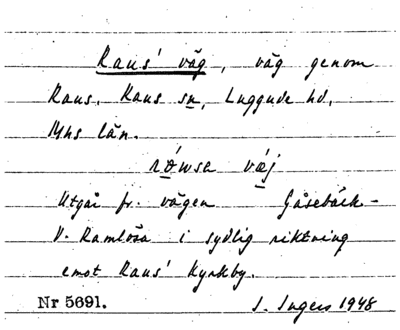 Raus' väg, väg genom
Raus. Raus sn, Luggude hd,
Mhs län.
rówsa væj
Utgår fr. vägen Gåsebäck-
V. Ramlösa i sydlig riktning
emot Raus' kyrkby.
Nr 5691. I. Ingers 1948